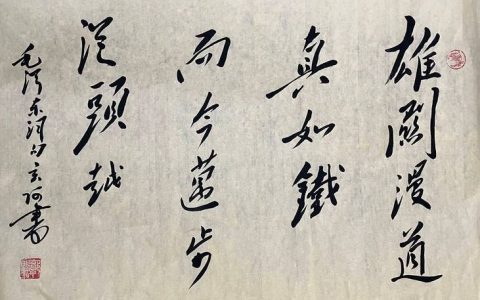 雄關漫道
真如鐵
而今邁步
從頭越
毛澤东词句 書